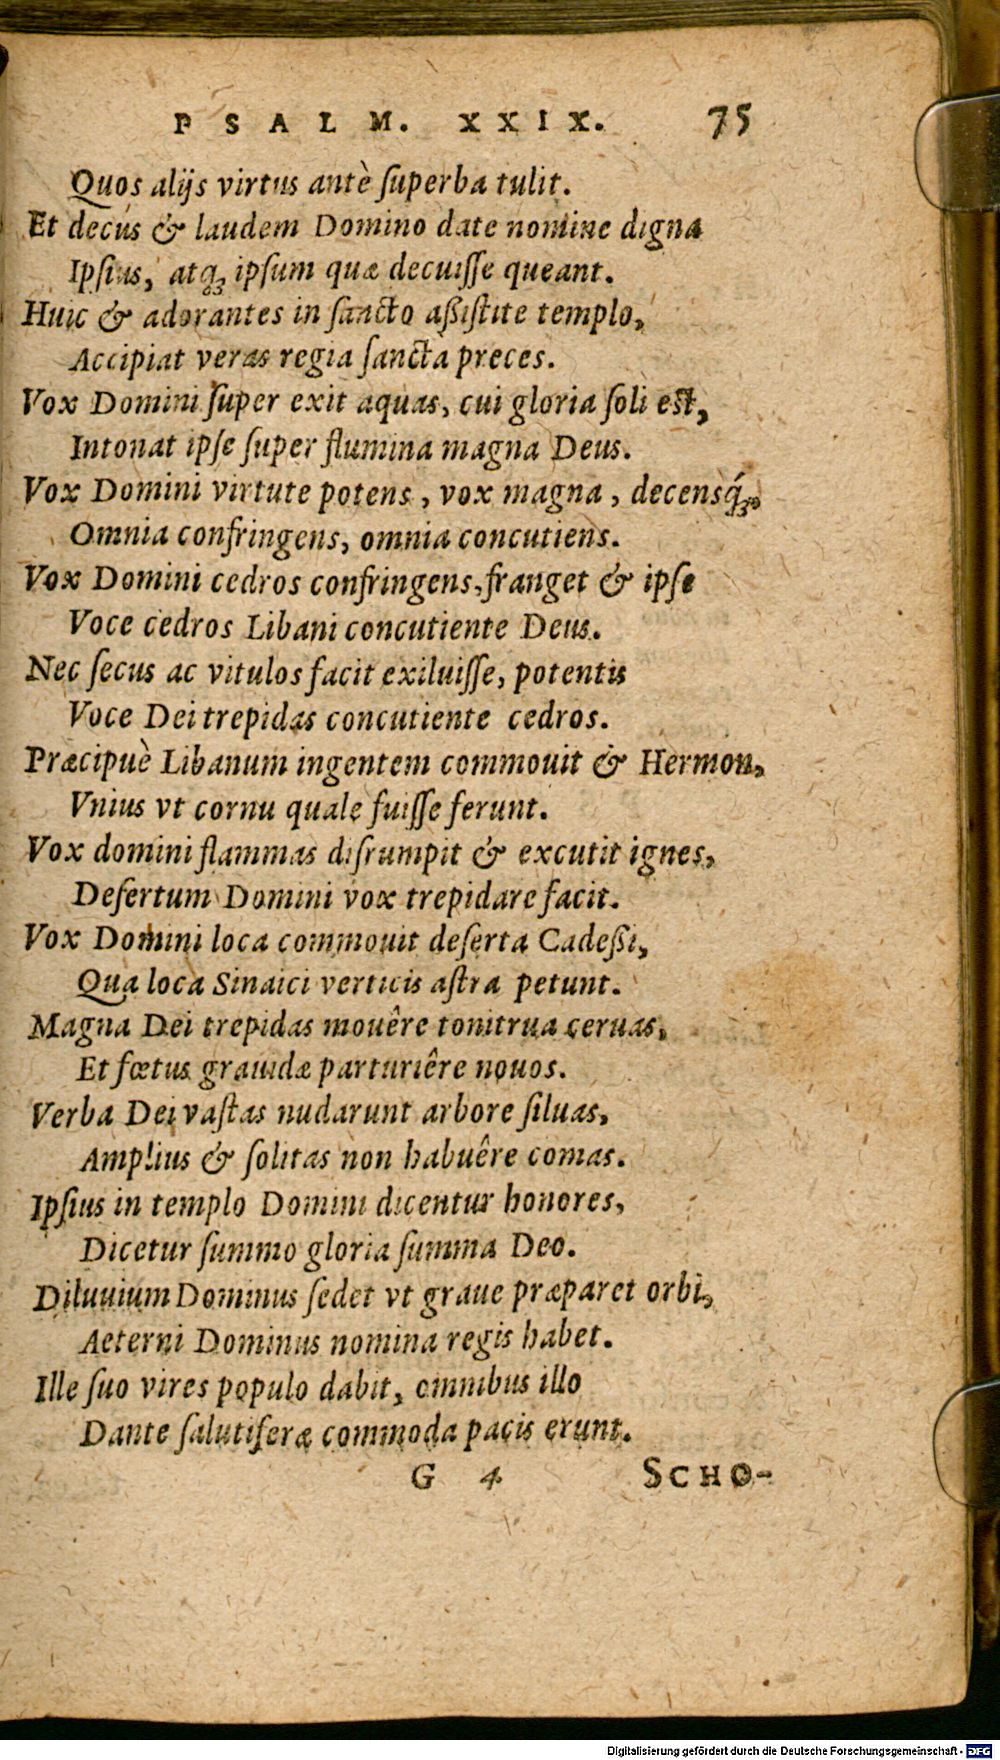 PSALM. XXIX. 75
Quos alijs virtus antè ſuperba tulit.
Et decus & laudem Domino date nomine digna
Ipſius, atq́; ipſum quæ decuiſſe queant.
Huic & adorantes in ſancto aßiſtite templo,
Accipiat veras regia ſancta preces.
Vox Domini ſuper exit aquas, cui gloria ſoli eſt,
Intonat ipſe ſuper flumina magna Deus.
Vox Domini virtute potens, vox magna, decensq́;.
Omnia confringens, omnia concutiens.
Vox Domini cedros confringens, franget & ipſe
Voce cedros Libani concutiente Deus.
Nec ſecus ac vitulos facit exiluiſſe, potentis
Voce Dei trepidas concutiente cedros.
Præcipuè Libanum ingentem commouit & Hermon,
Vnius vt cornu quale fuiſſe ferunt.
Vox domini flammas diſrumpit & excutit ignes,
Deſertum Domini vox trepidare facit.
Vox Domini loca commouit deſerta Cadeßi,
Qua loca Sinaici verticis aſtra petunt.
Magna Dei trepidas mouêre tonitrua ceruas,
Et fœtus grauidæ parturiêre nouos.
Verba Dei vaſtas nudarunt arbore ſiluas,
Amplius & ſolitas non habuêre comas.
Ipſius in templo Domini dicentur honores,
Dicetur ſummo gloria ſumma Deo.
Diluuium Dominus ſedet vt graue præparet orbi,
Aeterni Dominus nomina regis habet.
Ille ſuo vires populo dabit, omnibus illo
Dante ſalutiferæ commoda pacis erunt.
G 4 SCHO-
Digitalisierung gefördert durch die Deutsche Forschungsgemeinschaft - DFG